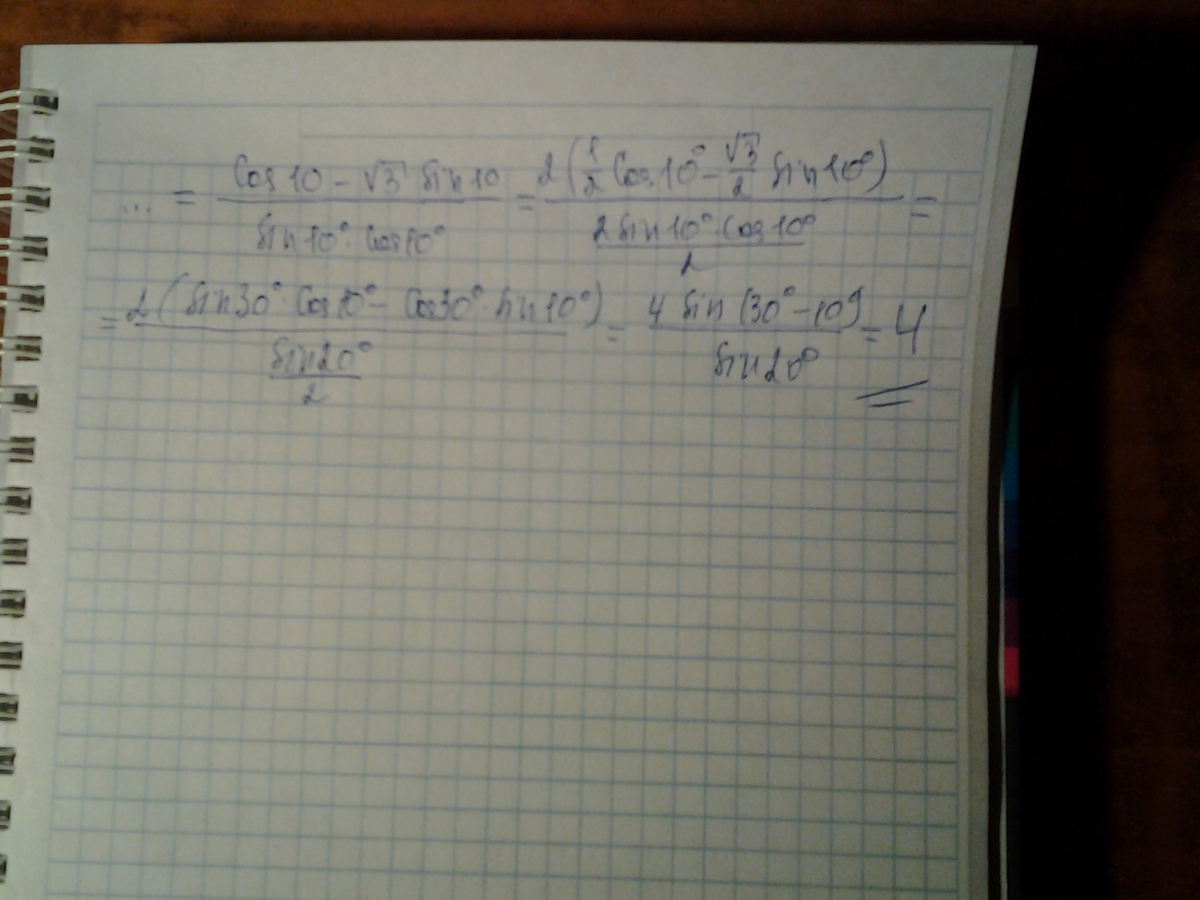 ... = (cos 10 - √3 sin 10)/(sin 10° · cos 10°) = 2(1/2 cos 10° - √3/2 sin 10°)/((2 sin 10° · cos 10°)/2) =
= 2(sin 30° · cos 10° - cos 30° · sin 10°)/((sin 20°)/2) = 4 sin (30° - 10°)/(sin 20°) = 4